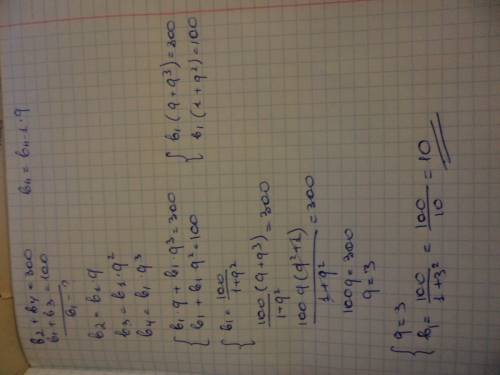 b₂ + b₄ = 300
b₁ + b₃ = 100
b₁ - ?
bₙ = bₙ₋₁ · q
b₂ = b₁ · q
b₃ = b₁ · q²
b₄ = b₁ · q³
{ b₁ · q + b₁ · q³ = 300
b₁ + b₁ · q² = 100
{ b₁ (q + q³) = 300
b₁ (1 + q²) = 100
{ b₁ = 100 / 1+q²
100 (q + q³) / 1+q² = 300
100 q (q² + 1) / 1 + q² = 300
100q = 300
q = 3
{ q = 3
b₁ = 100 / 1+3² = 100 / 10 = 10